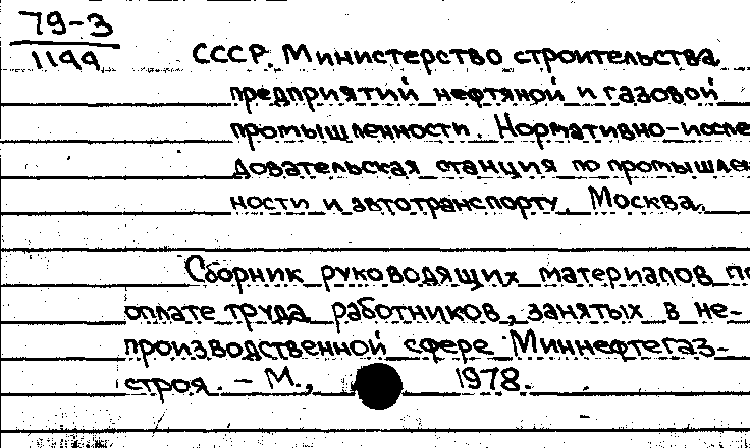 79-3
1144
СССР. Министерство строительства
предприятий нефтяной и газовой
промышленности. Нормативно-иссле
довательская станция по промышлен
ности и автотранспорту. Москва.
Сборник руководящих материалов по
оплате труда работников, занятых в не-
производственной сфере Миннефтегаз-
строя. - М., 1978.